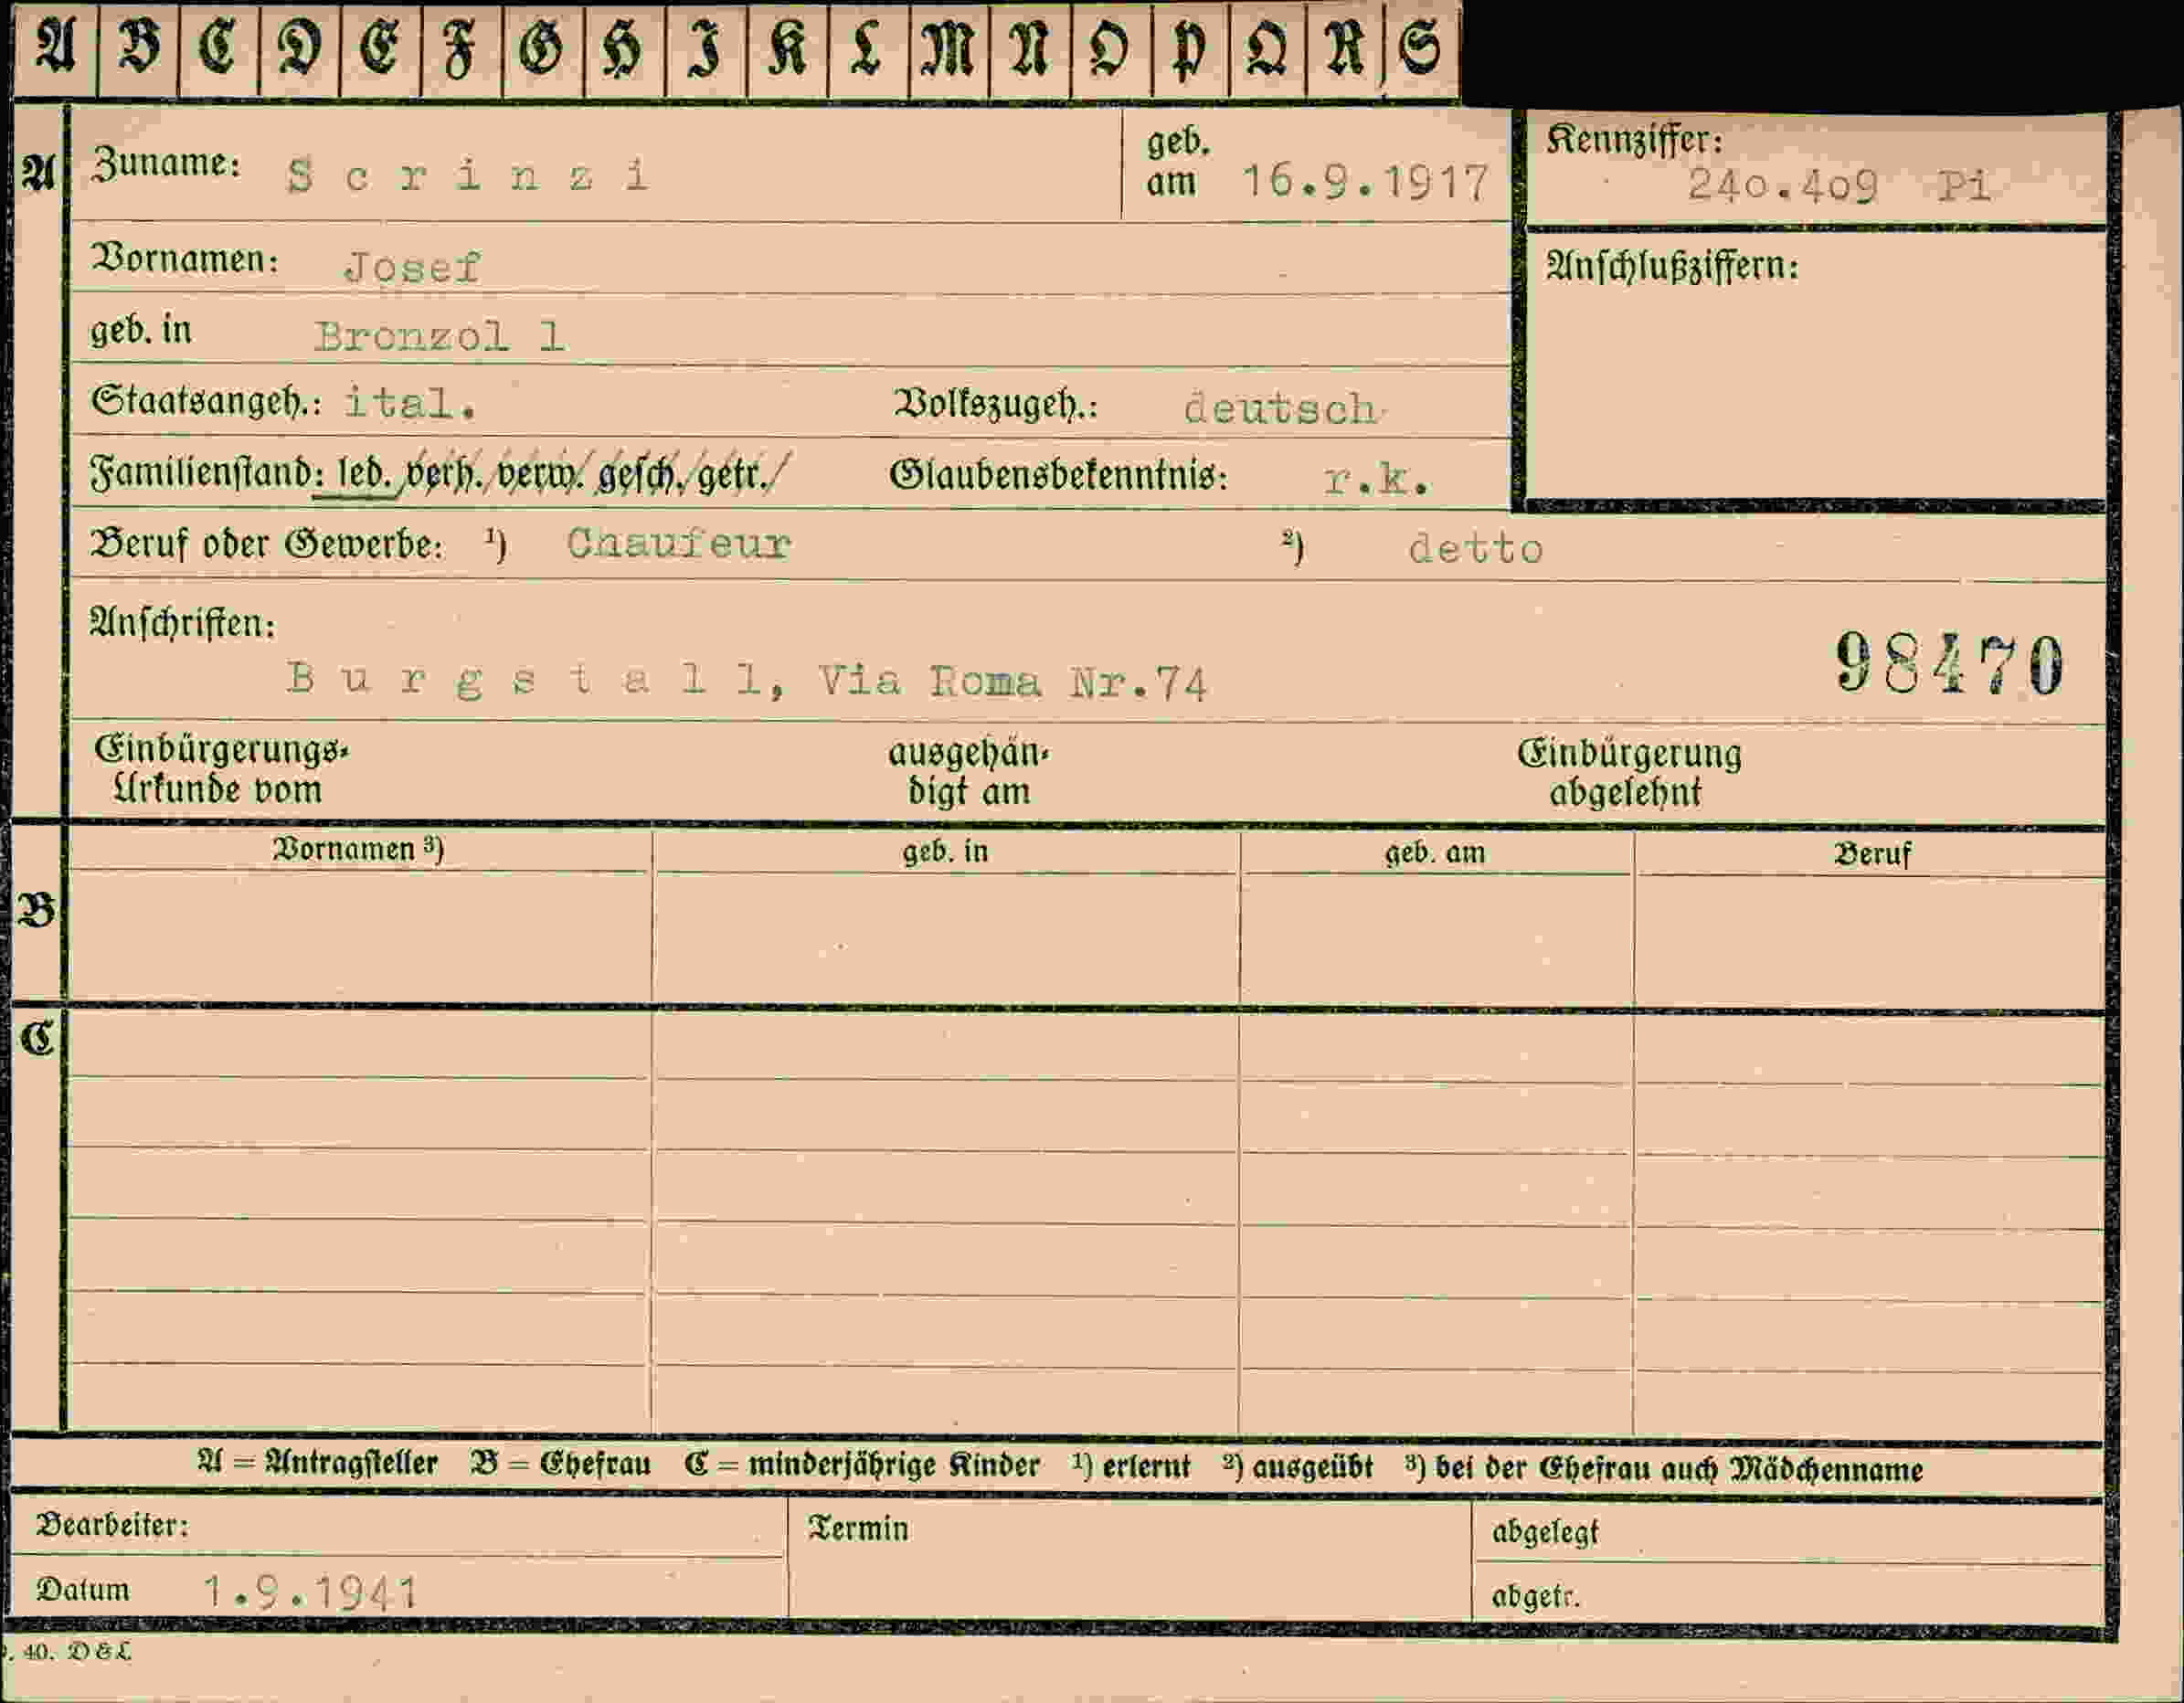 A B C D E F G H I K L M N O P Q R S
A Zuname: Scrinzi geb. am 16.9.1917 Kennziffer: 240.409 Pi
Vornamen: Josef Anschlußziffern:
geb. in Bronzol l
Staatsangeh.: ital. Volkszugeh.: deutsch
Familienstand: led. verh. verw. gesch. getr. Glaubensbekenntnis: r.k.
Beruf oder Gewerbe: ¹) Chaufeur ²) detto
Anschriften:
Burgstall, Via Roma Nr.74 98470
Einbürgerungs- ausgehän- Einbürgerung
Urkunde vom digt am abgelehnt
Vornamen ³) geb. in geb. am Beruf
B
C
A = Antragsteller B = Ehefrau C = minderjährige Kinder ¹) erlernt ²) ausgeübt ³) bei der Ehefrau auch Mädchenname
Bearbeiter: Termin abgelegt
Datum 1.9.1941 abgetr.
. 40. D & L